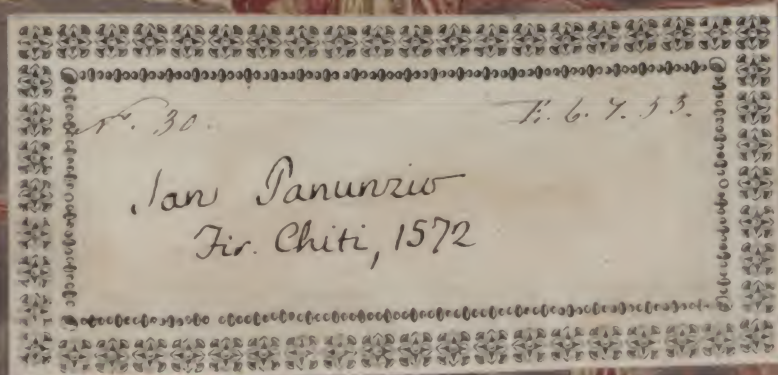 No. 30. E. 6. 7. 53.
San Panunzio
Fir. Chiti, 1572